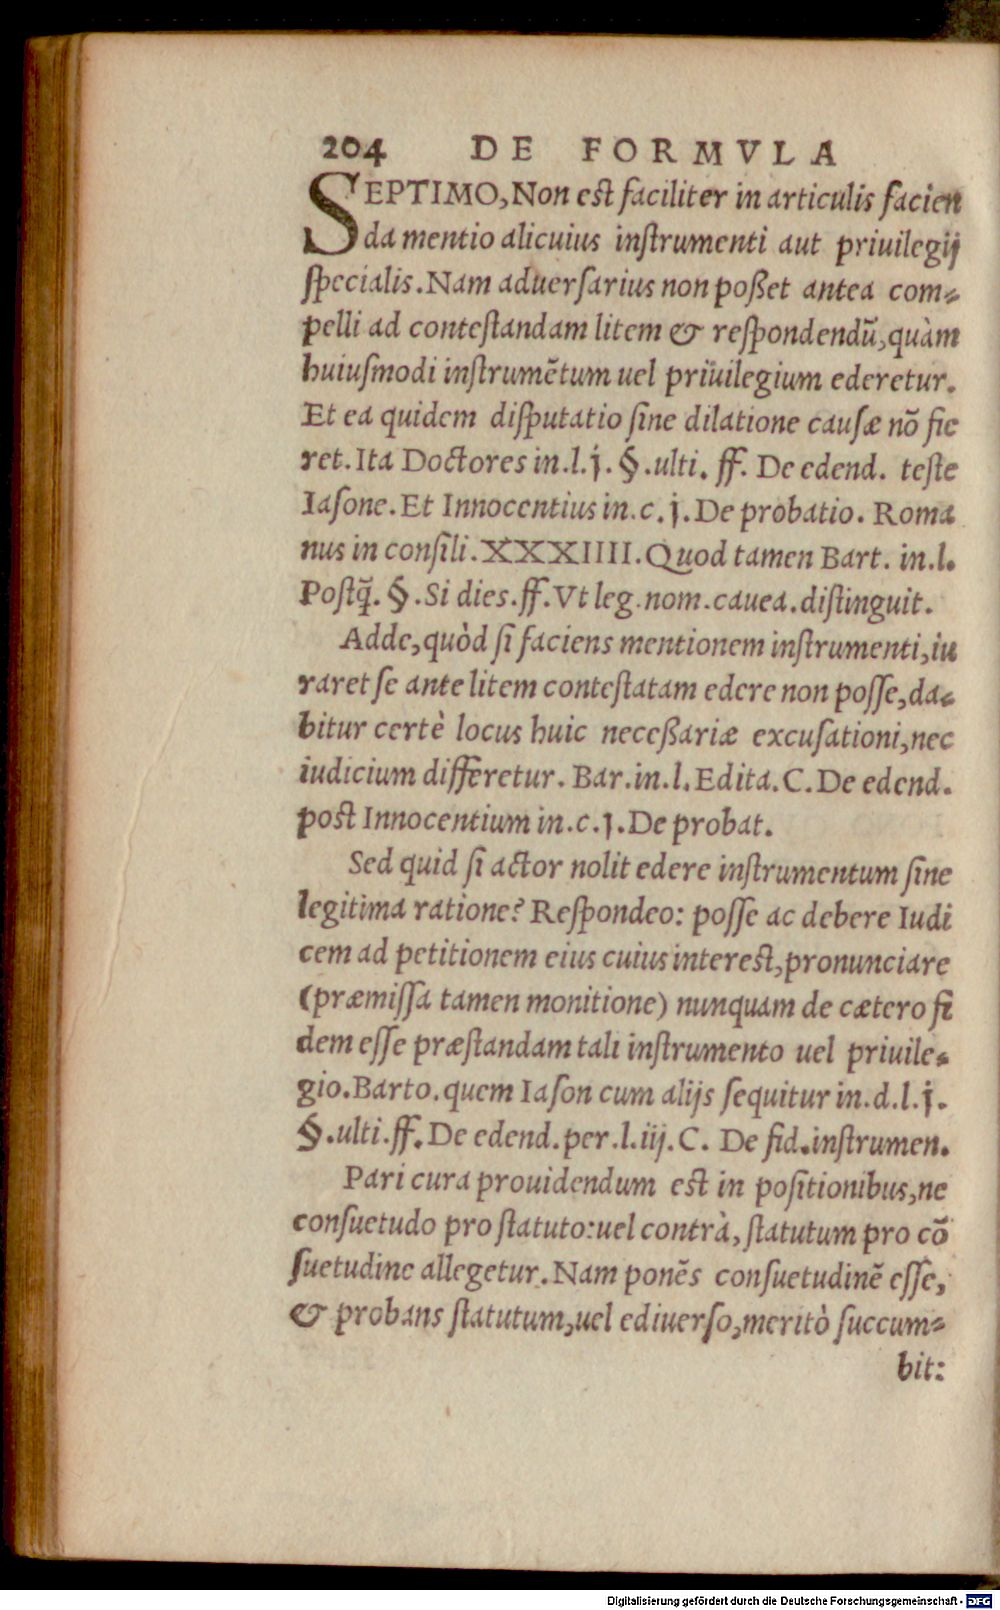 204 DE FORMVLA
SEPTIMO, Non est faciliter in articulis facien
da mentio alicuius instrumenti aut priuilegij
specialis. Nam aduersarius non poßet antea com-
pelli ad contestandam litem & respondendũ, quàm
huiusmodi instrumẽtum uel priuilegium ederetur.
Et ea quidem disputatio sine dilatione causæ nõ fie
ret. Ita Doctores in.l.j. §.ulti. ff. De edend. teste
Iasone. Et Innocentius in.c.j. De probatio. Roma
nus in consili. XXXIIII. Quod tamen Bart. in.l.
Postq̃. §. Si dies. ff. Vt leg. nom. cauea. distinguit.
Adde, quòd si faciens mentionem instrumenti, iu
raret se ante litem contestatam edere non posse, da-
bitur certè locus huic neceßariæ excusationi, nec
iudicium differetur. Bar. in.l. Edita. C. De edend.
post Innocentium in.c.j. De probat.
Sed quid si actor nolit edere instrumentum sine
legitima ratione? Respondeo: posse ac debere Iudi
cem ad petitionem eius cuius interest, pronunciare
(præmissa tamen monitione) nunquam de cætero fi
dem esse præstandam tali instrumento uel priuile-
gio. Barto. quem Iason cum alijs sequitur in.d.l.j.
§.ulti. ff. De edend. per.l.iij. C. De fid. instrumen.
Pari cura prouidendum est in positionibus, ne
consuetudo pro statuto: uel contrà, statutum pro cõ
suetudine allegetur. Nam ponẽs consuetudinẽ esse,
& probans statutum, uel ediuerso, meritò succum-
bit:
Digitalisierung gefördert durch die Deutsche Forschungsgemeinschaft - DFG